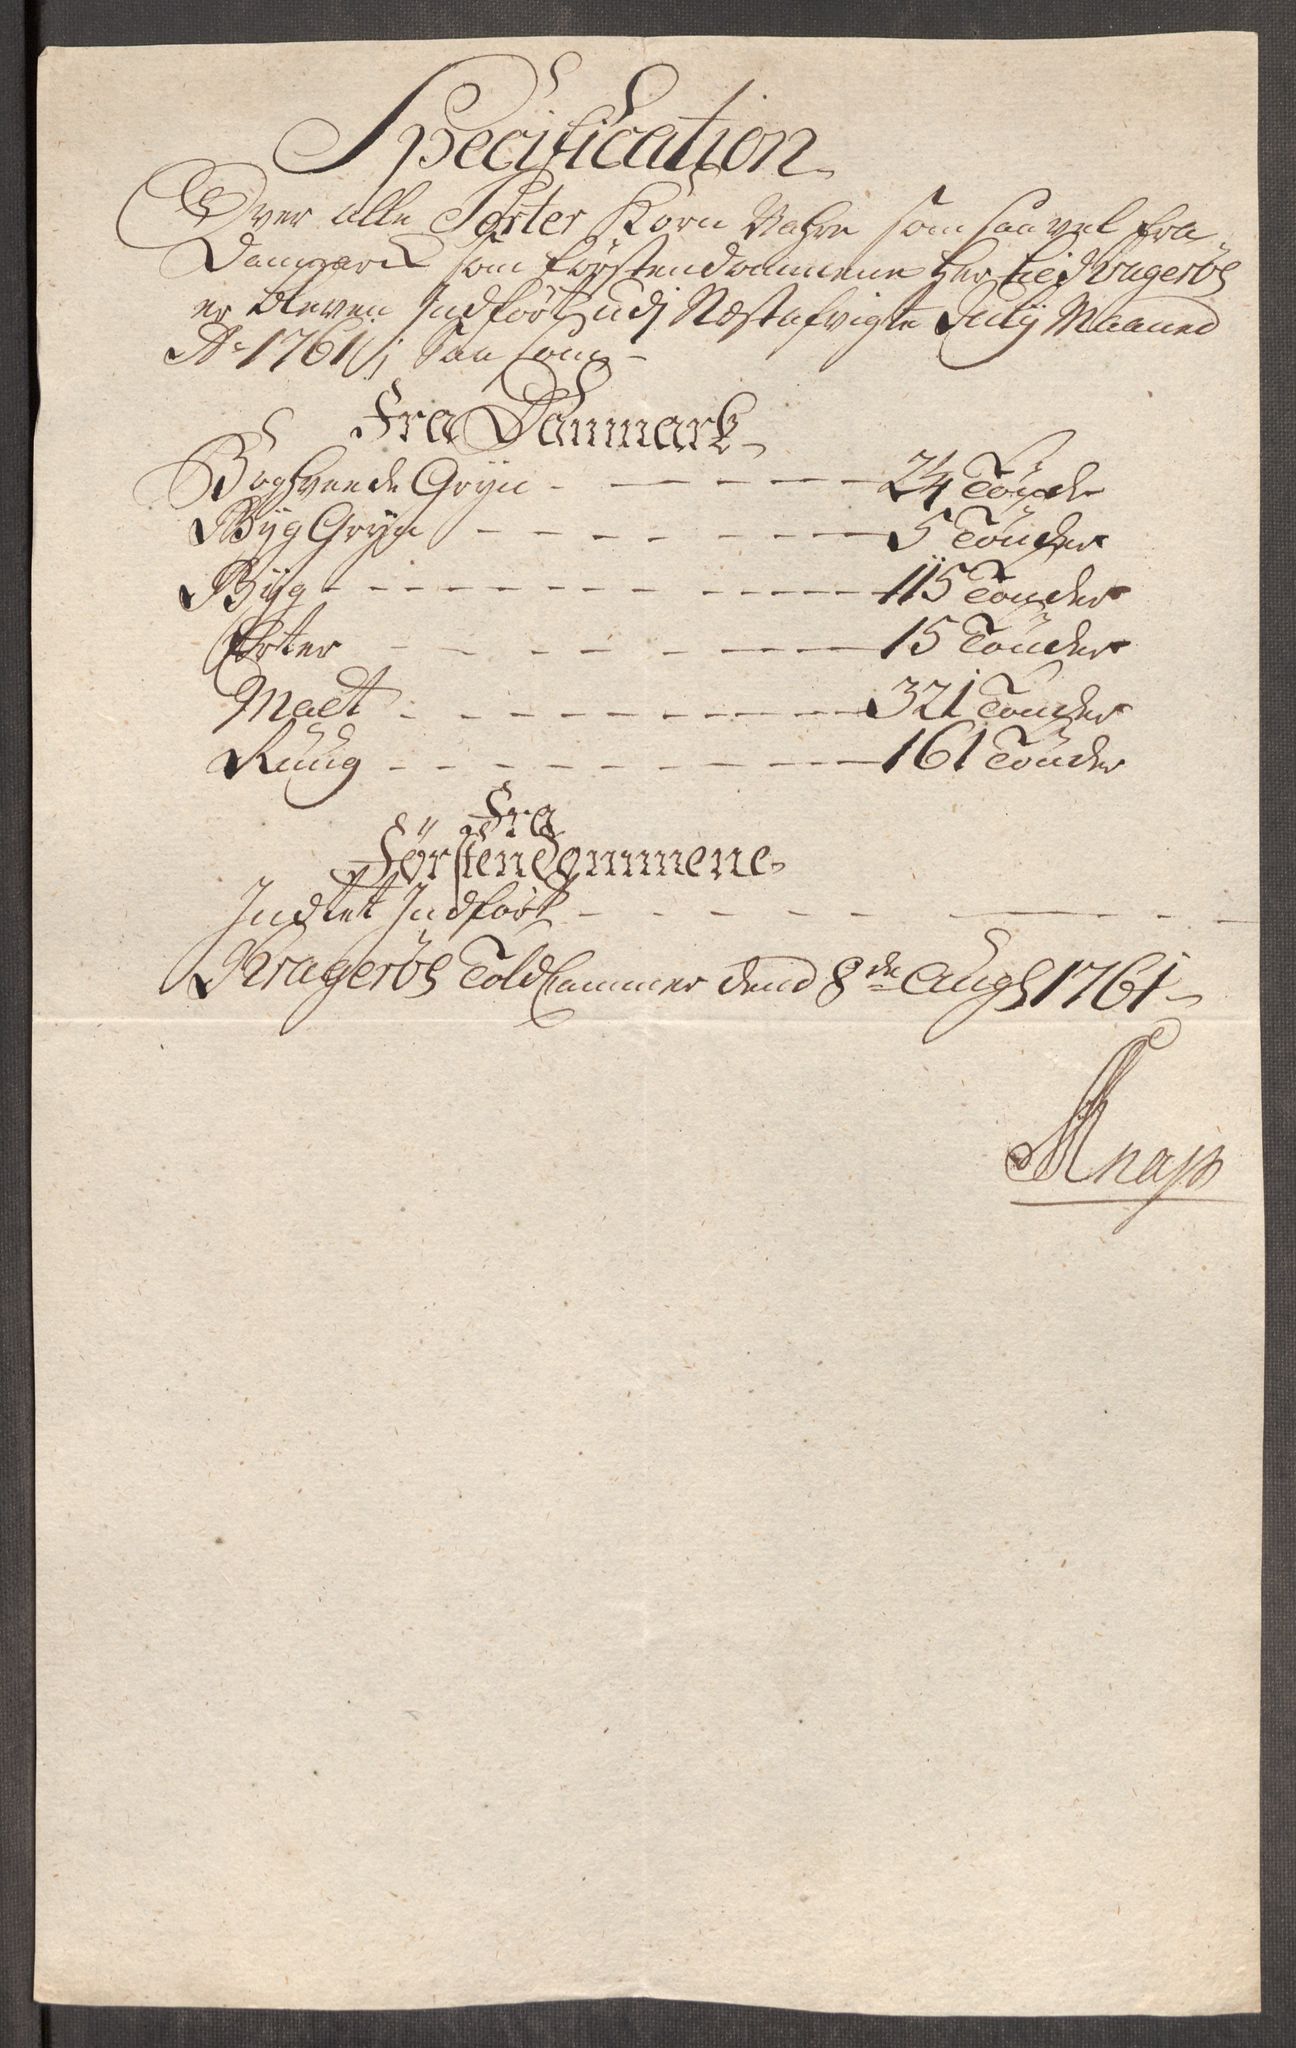 Specification
Over alle Sorter Korn Vahre som saavel fra
Danmarck som Förstendommene her tie Krageröe
er bleven Indfört udj Næstafvigte Julij Maaned
Ao 1761 Saasom
Fra Danmark
Boghveede Gryn 24 Tönder
Byg Gryn 5 Tönder
Byg 115 Tönder
Erter 15 Tönder
Malt 321 Tönder
Ruug 161 Tönder
Fra
Förstendommene
Indtet Indfört
Krageröe Told Cammer dend 8de Aug 1761
Knapp